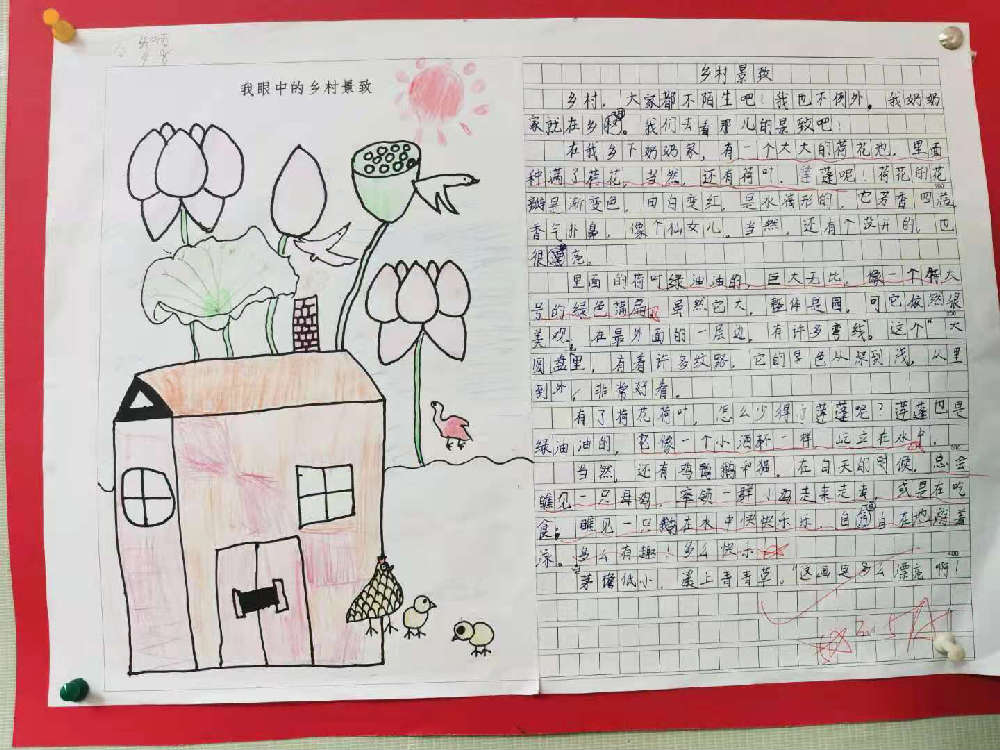 我眼中的乡村景致
乡村景致
乡村，大家都不陌生吧！我也不例外。我奶奶
家就在乡村。我们去看那儿的景致吧！
在我乡下奶奶家，有一个大大的荷花池，里面
种满了荷花，当然，还有荷叶、莲蓬呢！荷花的花
瓣是渐变色，由白变红，是水滴形的，它芳香四溢
香气扑鼻，像个仙女儿。当然，还有个没开的，也
很漂亮。
里面的荷叶绿油油的，巨大无比，像一个特大
号的绿色蒲扇。虽然它大，整体是圆，可它依然很
美观。在最外面的一层边，有许多弯线。这个"大
圆盘"里，有着许多纹路。它的颜色从深到浅，从里
到外，非常好看。
有了荷花荷叶，怎么少得了莲蓬呢？莲蓬也是
绿油油的，它像一个小酒杯一样，屹立在水中。
当然，还有鸡鸭鹅和猫。在白天的时候，总会
瞧见一只母鸡，率领一群小鸡走来走去，或是在吃
食；瞧见一只鹅在水中快快乐乐、自由自在地游着
泳。多么有趣！多么快乐
茅檐低小，溪上青青草。这画是多么漂亮啊！